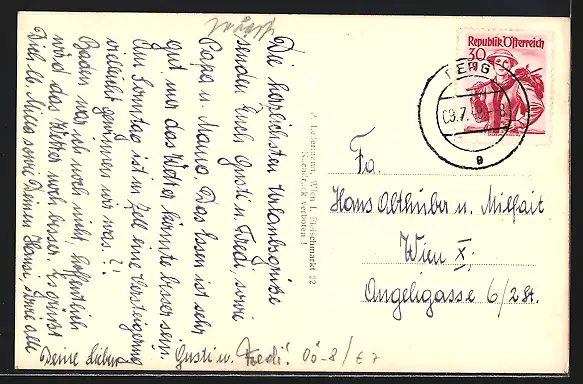 Die herzlichsten Urlaubsgrüsse
senden Euch Gusti u. Fredi, sowie
Papa u. Mama. Das Essen ist sehr
gut, nur das Wetter könnte besser sein.
Am Sonntag ist in Zell eine Versteigerung
vielleicht gewinnen wir was?!
Baden war ich noch nicht, hoffentlich
wird das Wetter noch besser. Es grüsst
Dich l. sowie Deinen Hansi, sowie alle
Deine Lieben Gusti u. Fredi! OÖ-8/ E7
P. Ledermann, Wien I. Fleischmarkt 22
Nachdruck verboten!
Republik Österreich
30
BERG
09.7.
a
Fa.
Hans Althuber u. Milfait
Wien X;
Angeligasse 6/2 St.